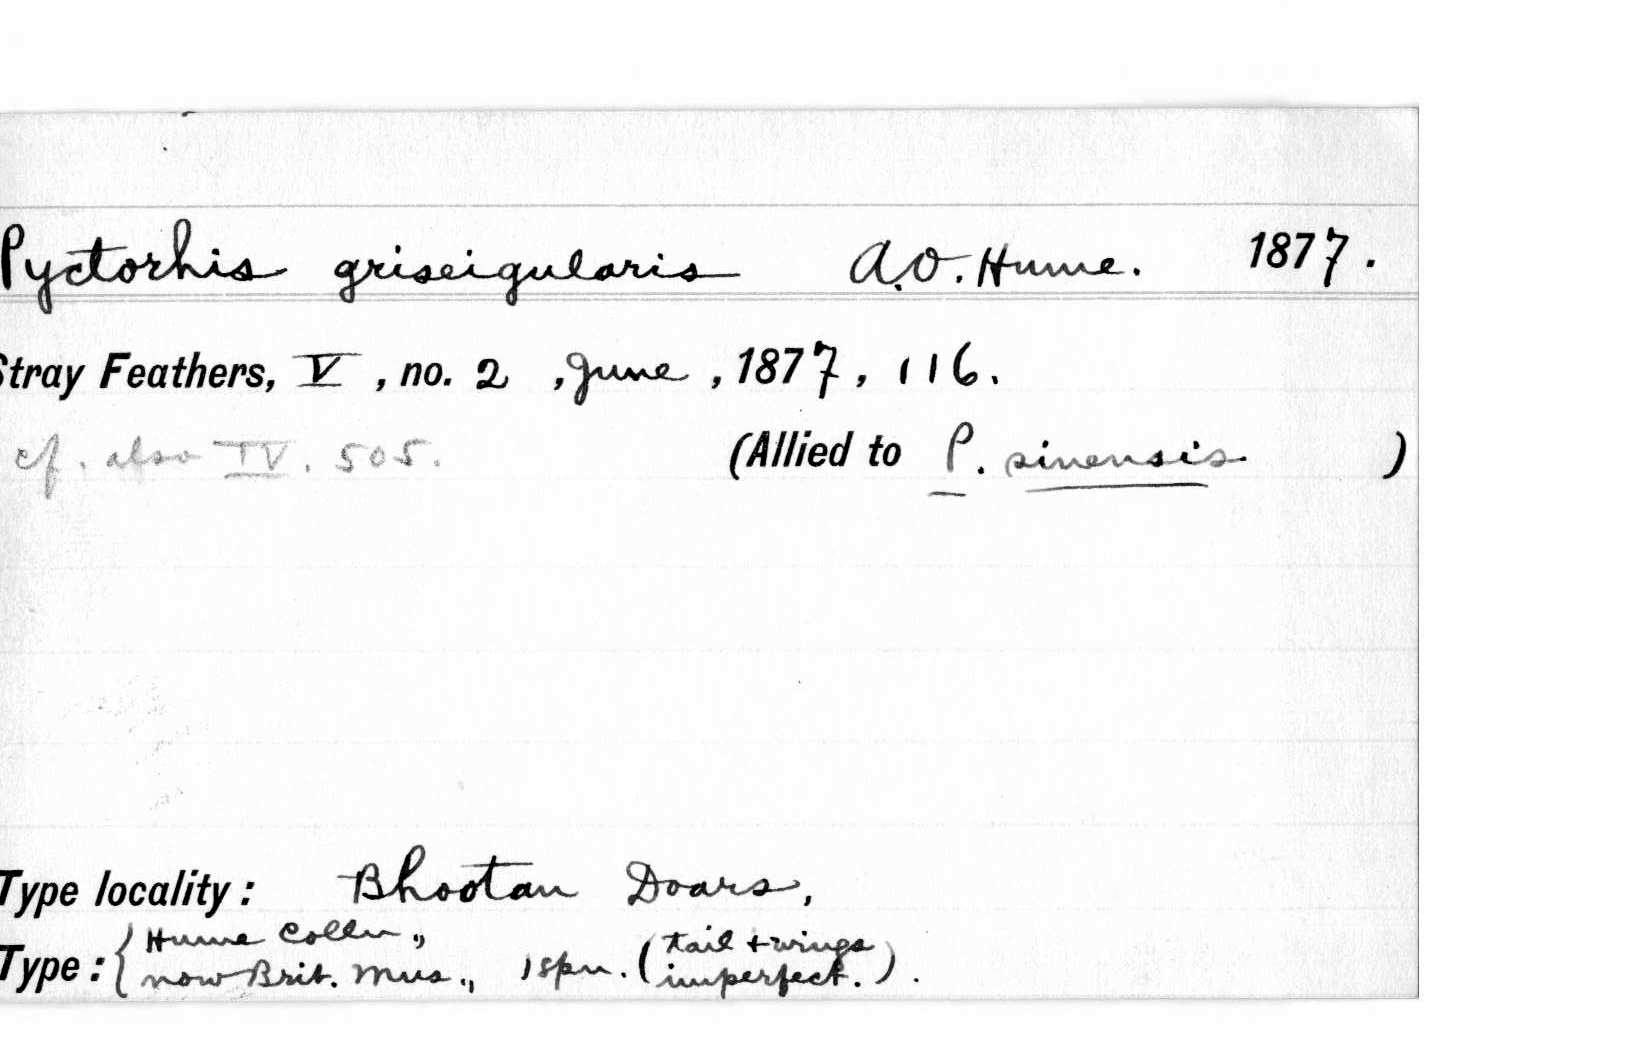 Pyctorhis griseigularis A.O. Hume. 1877.
Stray Feathers, V, no. 2, June, 1877, 116.
cf. also IV. 505.
(Allied to P. sinensis. )
Type locality: Bhootan Doars,
Type: { Hume Colln.,
now Brit. Mus., 1 spn. (tail + wings
imperfect.).